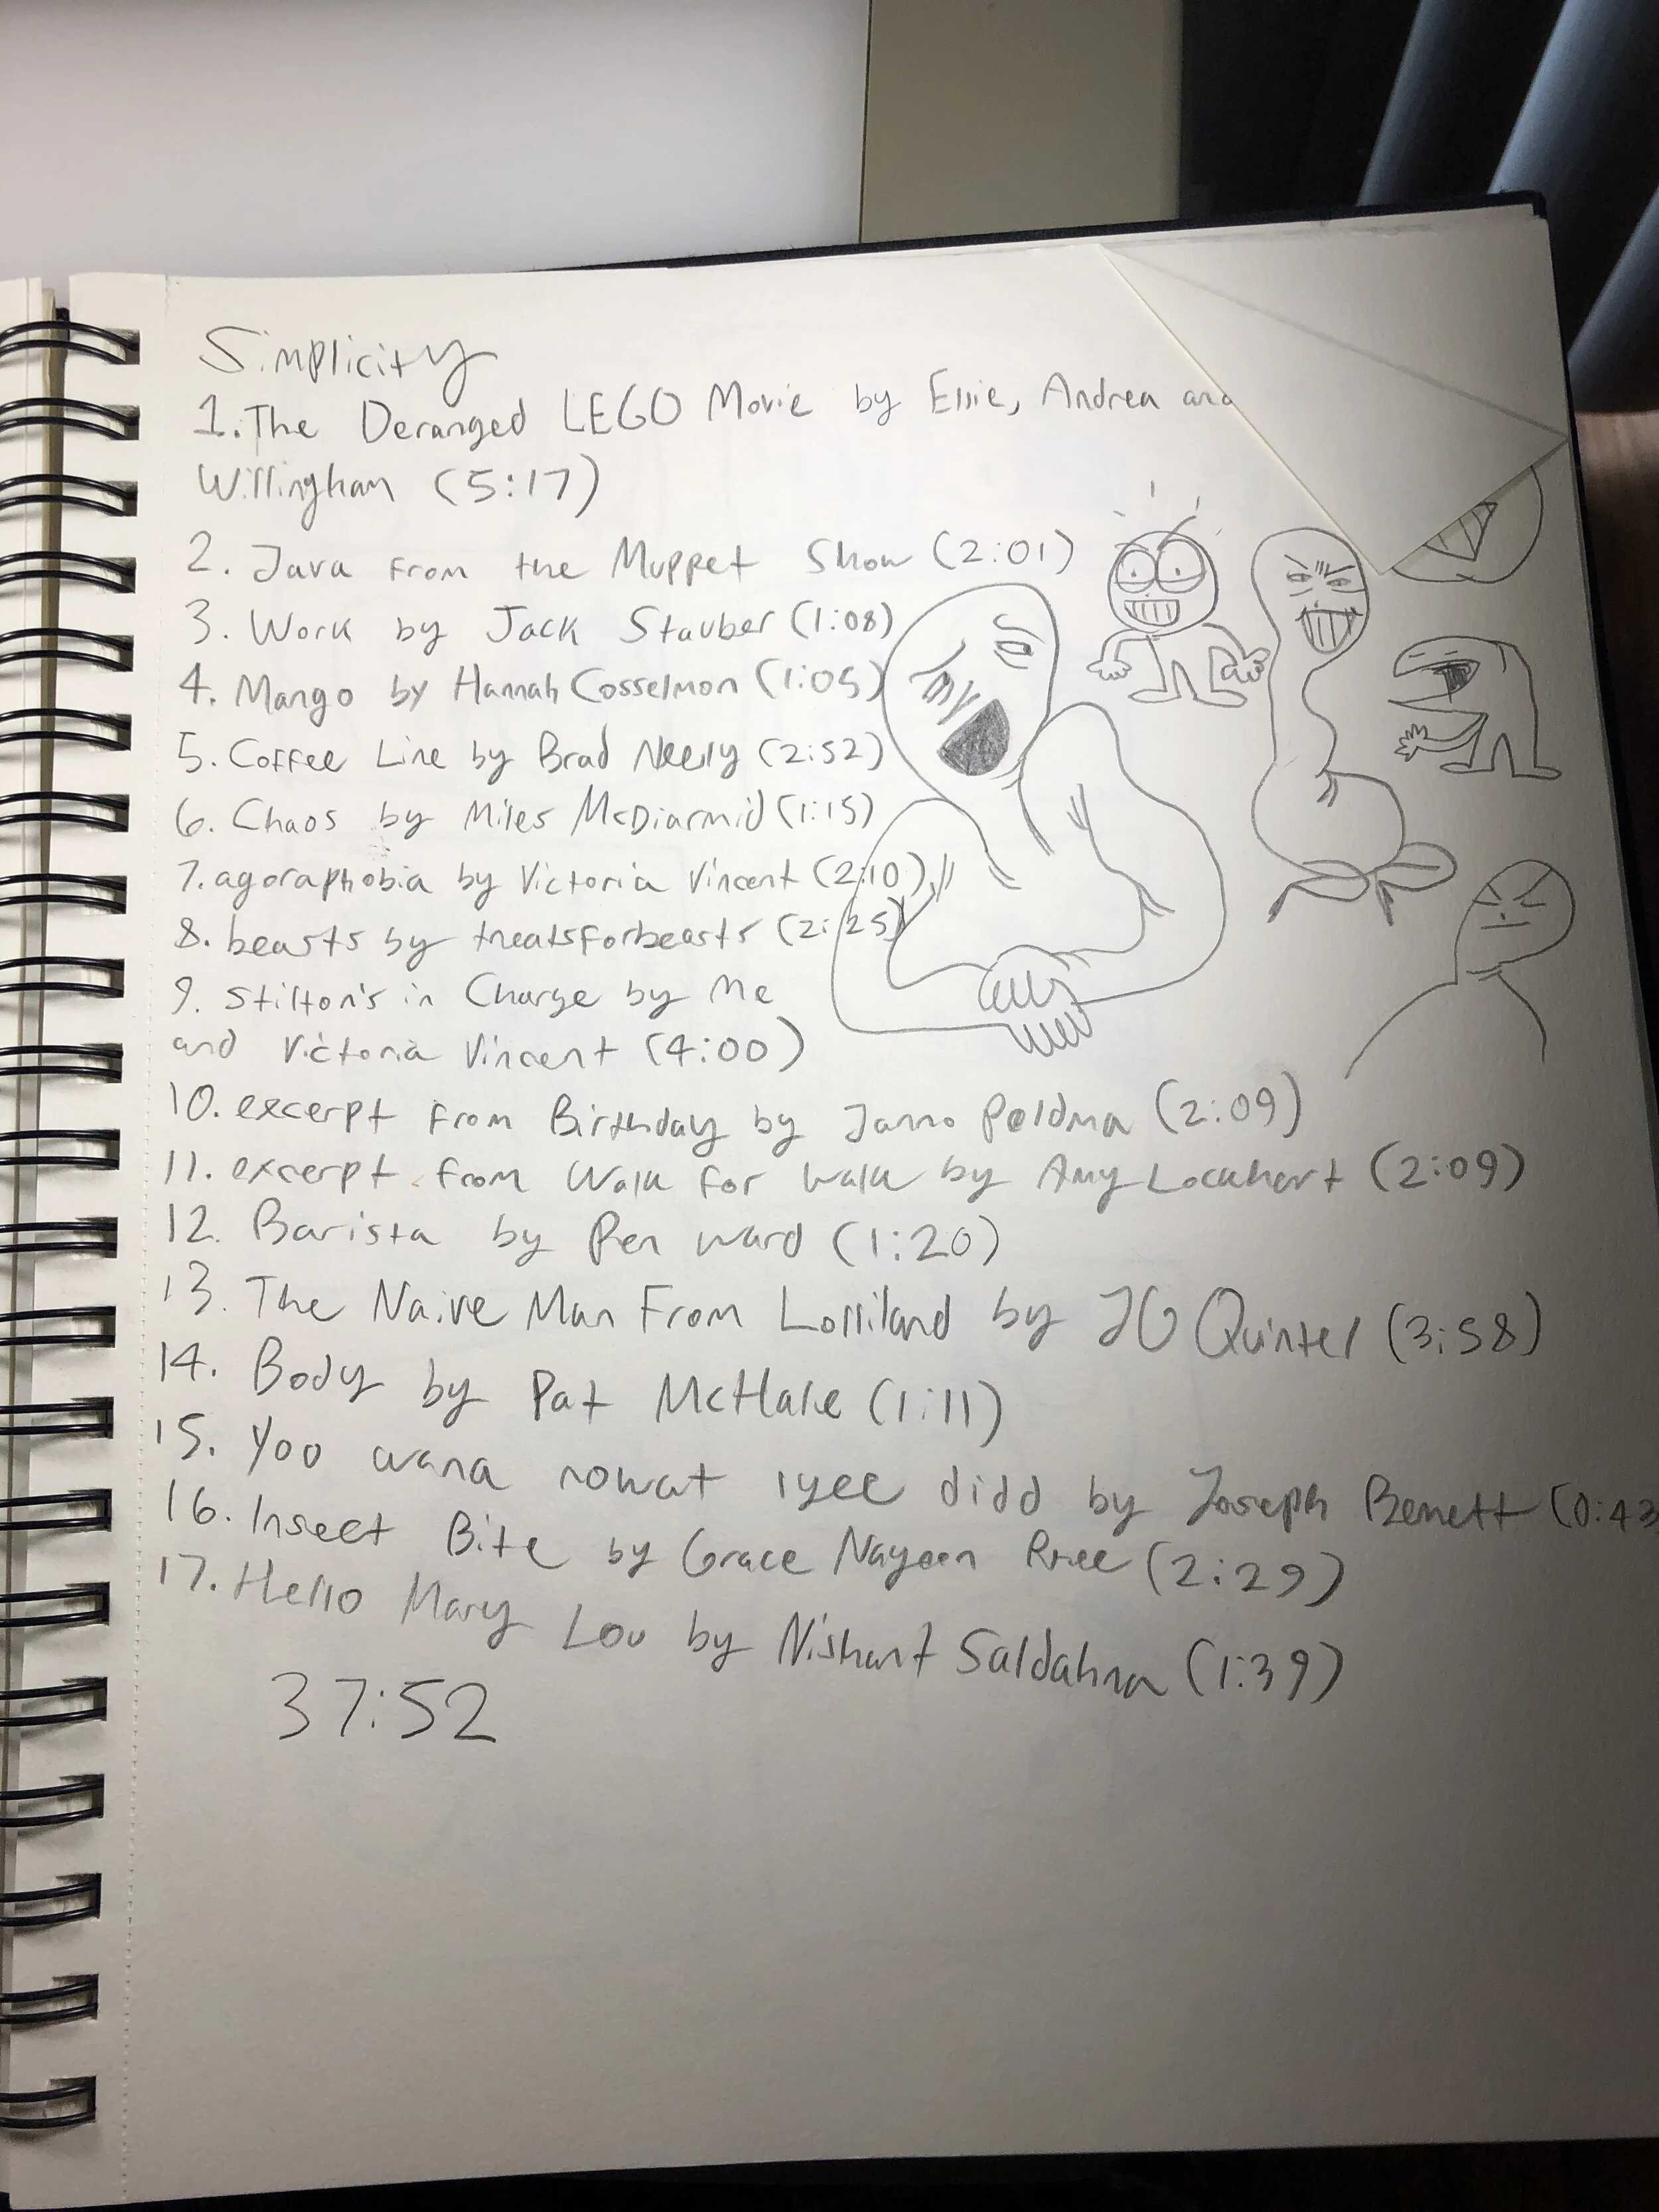 Simplicity
1. The Deranged LEGO Movie by Ellie, Andrea and
Willingham (5:17)
2. Java from the Muppet Show (2:01)
3. Work by Jack Stauber (1:08)
4. Mango by Hannah Cosselmon (1:05)
5. Coffee Line by Brad Neely (2:52)
6. Chaos by Miles McDiarmid (1:15)
7. agoraphobia by Victoria Vincent (2:10)
8. beasts by treatsforbeasts (2:25)
9. Stilton's in Charge by Me
and Victoria Vincent (4:00)
10. excerpt from Birthday by Janno Poldma (2:09)
11. excerpt from Walk for Walk by Amy Lockhart (2:09)
12. Barista by Pen Ward (1:20)
13. The Naive Man From Lolliland by JG Quintel (3:58)
14. Body by Pat McHale (1:11)
15. Yoo wana nowat iyee didd by Joseph Bennett (0:43
16. Insect Bite by Grace Nayoon Rhee (2:29)
17. Hello Mary Lou by Nishant Saldahna (1:39)
37:52